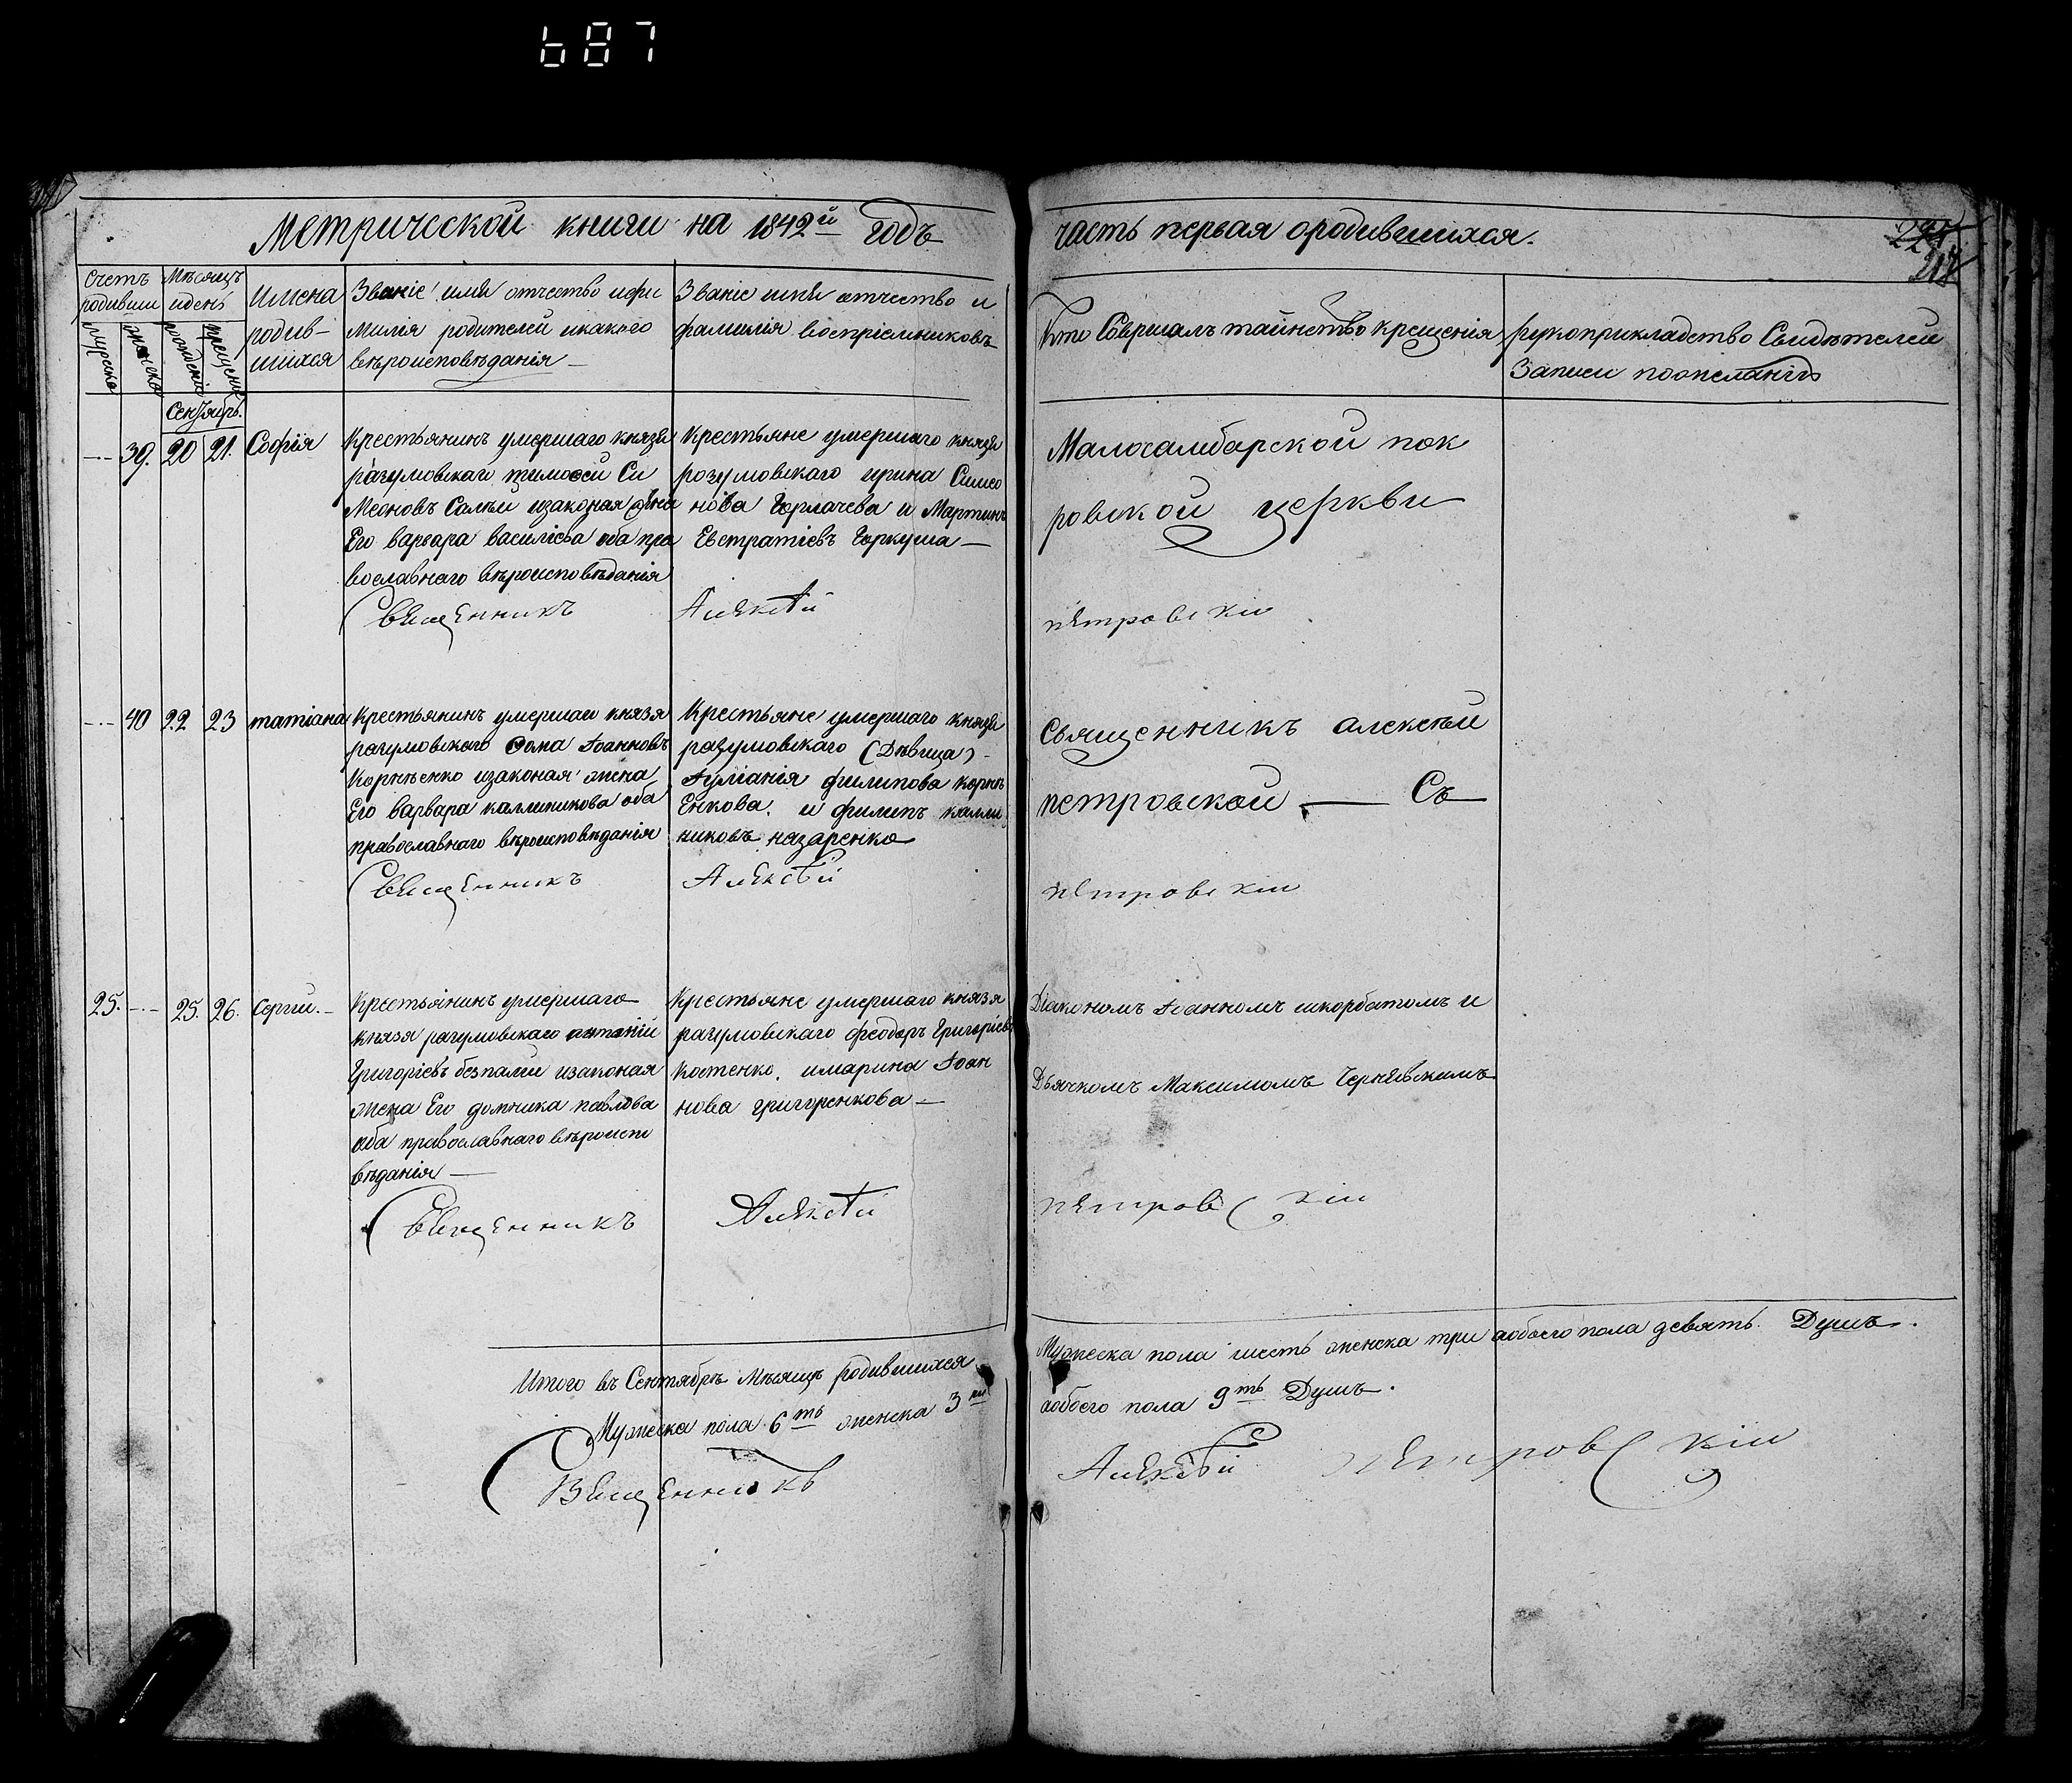 687
Метрической книги на 1842й годъ
часть первая ородившихся.
217
Счетъ родивши
Мѣсяцъ идень
мужеска
женска
рожденія
крещенія
Имена
родив-
шихся
Званіе имя отчество ифа
милія родителей икакого
вѣроисповѣданія
Званіе имя отчество и
фамилія воспріемниковъ
Кто Совршалъ таинство крещенія
рукоприкладство Свидѣтелей
Записи
Сентябрь.
39. 20 21. Софія
Крестьянинъ умершаго князя
разумовскаго тимофей Си
меоновъ изаконая жена
Его варвара василіева оба пра
вославнаго вѣроисповѣданія
Крестьяне умершаго князя
розумовскаго ирина Симео
нова Горлачева и Мартинъ
Евстратіевъ Горкуша
Священникъ Алексѣй Петровскій
Малосамборской пок
ровской церкви
40 22 23 татіана
Крестьянинъ умершаго князя
разумовскаго Фома Іоанновъ
Корнѣенко изаконая жена
Его варвара каллиникова оба
православнаго вѣроисповѣданія
Крестьяне умершаго князя
разумовскаго (Дѣвица)
Іуліанія филипова корнѣ
Енкова. и филипъ калли
никовъ назаренко
Священникъ Алексѣй Петровскій
Священникъ алексѣй
петровской Съ
25. 25. 26. Сергій.
Крестьянинъ умершаго
князя разумовскаго антоній
Григоріевъ безпалый изаконая
жена Его домника павлова
оба православнаго вѣроиспо
вѣданія
Крестьяне умершаго князя
разумовскаго феодоръ Григоріевъ
Костенко. имарина Іоан
нова григоренкова
Священникъ Алексѣй Петровскій
Діакономъ Іоанномъ шкорбатомъ и
Дьячкомъ Максимомъ Чернявскимъ
Итого въ Сентябрѣ Мѣсяцѣ родившихся
Мужеска пола шесть женска три аобоего пола девять. Душъ.
Мужеска пола 6ть женска 3ри
аобоего пола 9ть Душъ.
Священникъ Алексѣй Петровскій